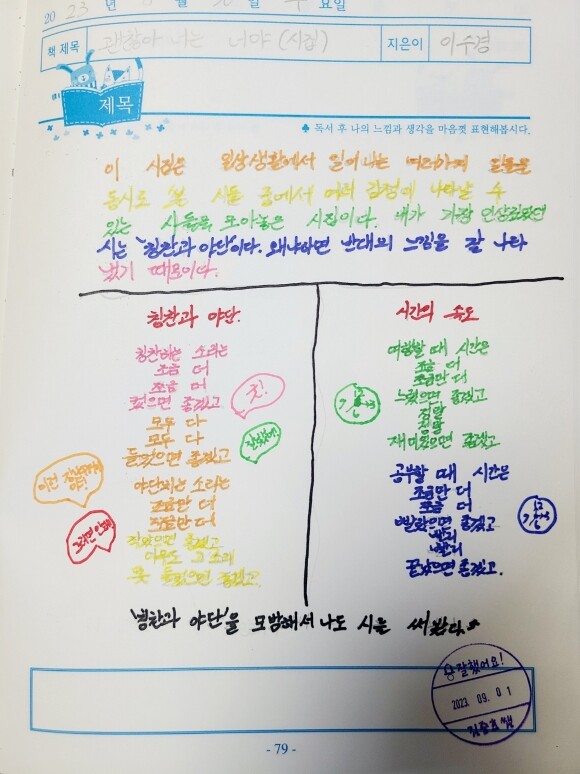 20 23 년 월 일 요일
책 제목 괜찮아 너는 너야 (시집) 지은이 이수경
제목
♣ 독서 후 나의 느낌과 생각을 마음껏 표현해봅시다.
이 시집은 일상생활에서 일어나는 여러가지 일들을
동시로 쓴 시들 중에서 여러 감정에 나타날 수
있는 시들을 모아놓은 시집이다. 내가 가장 인상깊었던
시는 '칭찬과 야단'이다. 왜냐하면 반대의 느낌을 잘 나타
냈기 때문이다.
칭찬과 야단.
칭찬하는 소리는
조금 더
조금 더
컸으면 좋겠고
굿!
모두 다
모두 다
잘했어!
들렸으면 좋겠고
야단치는 소리는
조금만 더
조금만 더
그러면 안돼!
작았으면 좋겠고
아무도 그 소리
못 들었으면 좋겠고.
시간의 속도
여행할 때 시간은
조금 더
조금만 더
느렸으면 좋겠고
12
9 3
6
정말
정말
재미있으면 좋겠고
공부할 때 시간은
조금만 더
조금 더
빨랐으면 좋겠고
12
9 3
6
빨리
빨리
끝났으면 좋겠고.
'칭찬과 야단'을 모방해서 나도 시를 써봤다.
참 잘했어요!
2023. 09. 01
- 79 -